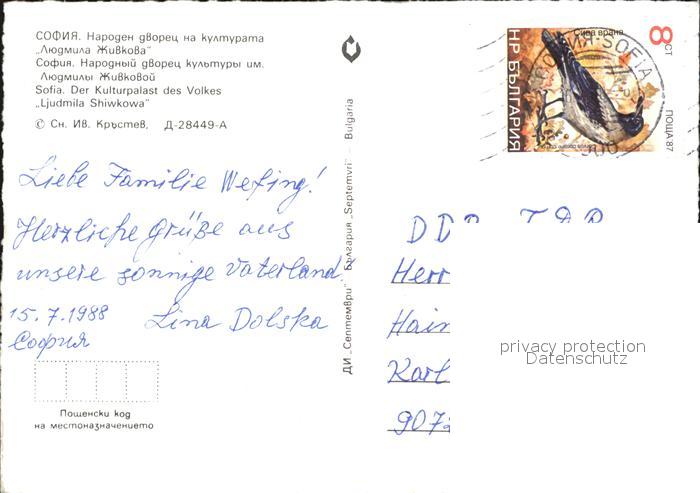 СОФИЯ. Народен дворец на културата
„Людмила Живкова"
София. Народный дворец культуры им.
Людмилы Живковой
Sofia. Der Kulturpalast des Volkes
„Ljudmila Shiwkowa"
© Сн. Ив. Кръстев, Д-28449-А
Liebe Familie Wefing!
Herzliche Grüße aus
unsere sonnige Vaterland.
15.7.1988 Lina Dolska
София
Пощенски код
на местоназначението
ДИ „Септември" България „Septemvri" Bulgaria
Сива врана
8 СТ
НР БЪЛГАРИЯ
ПОЩА 87
СОФИЯ-SOFIA
DDR
Herr
Hain
Karl
907
privacy protection
Datenschutz